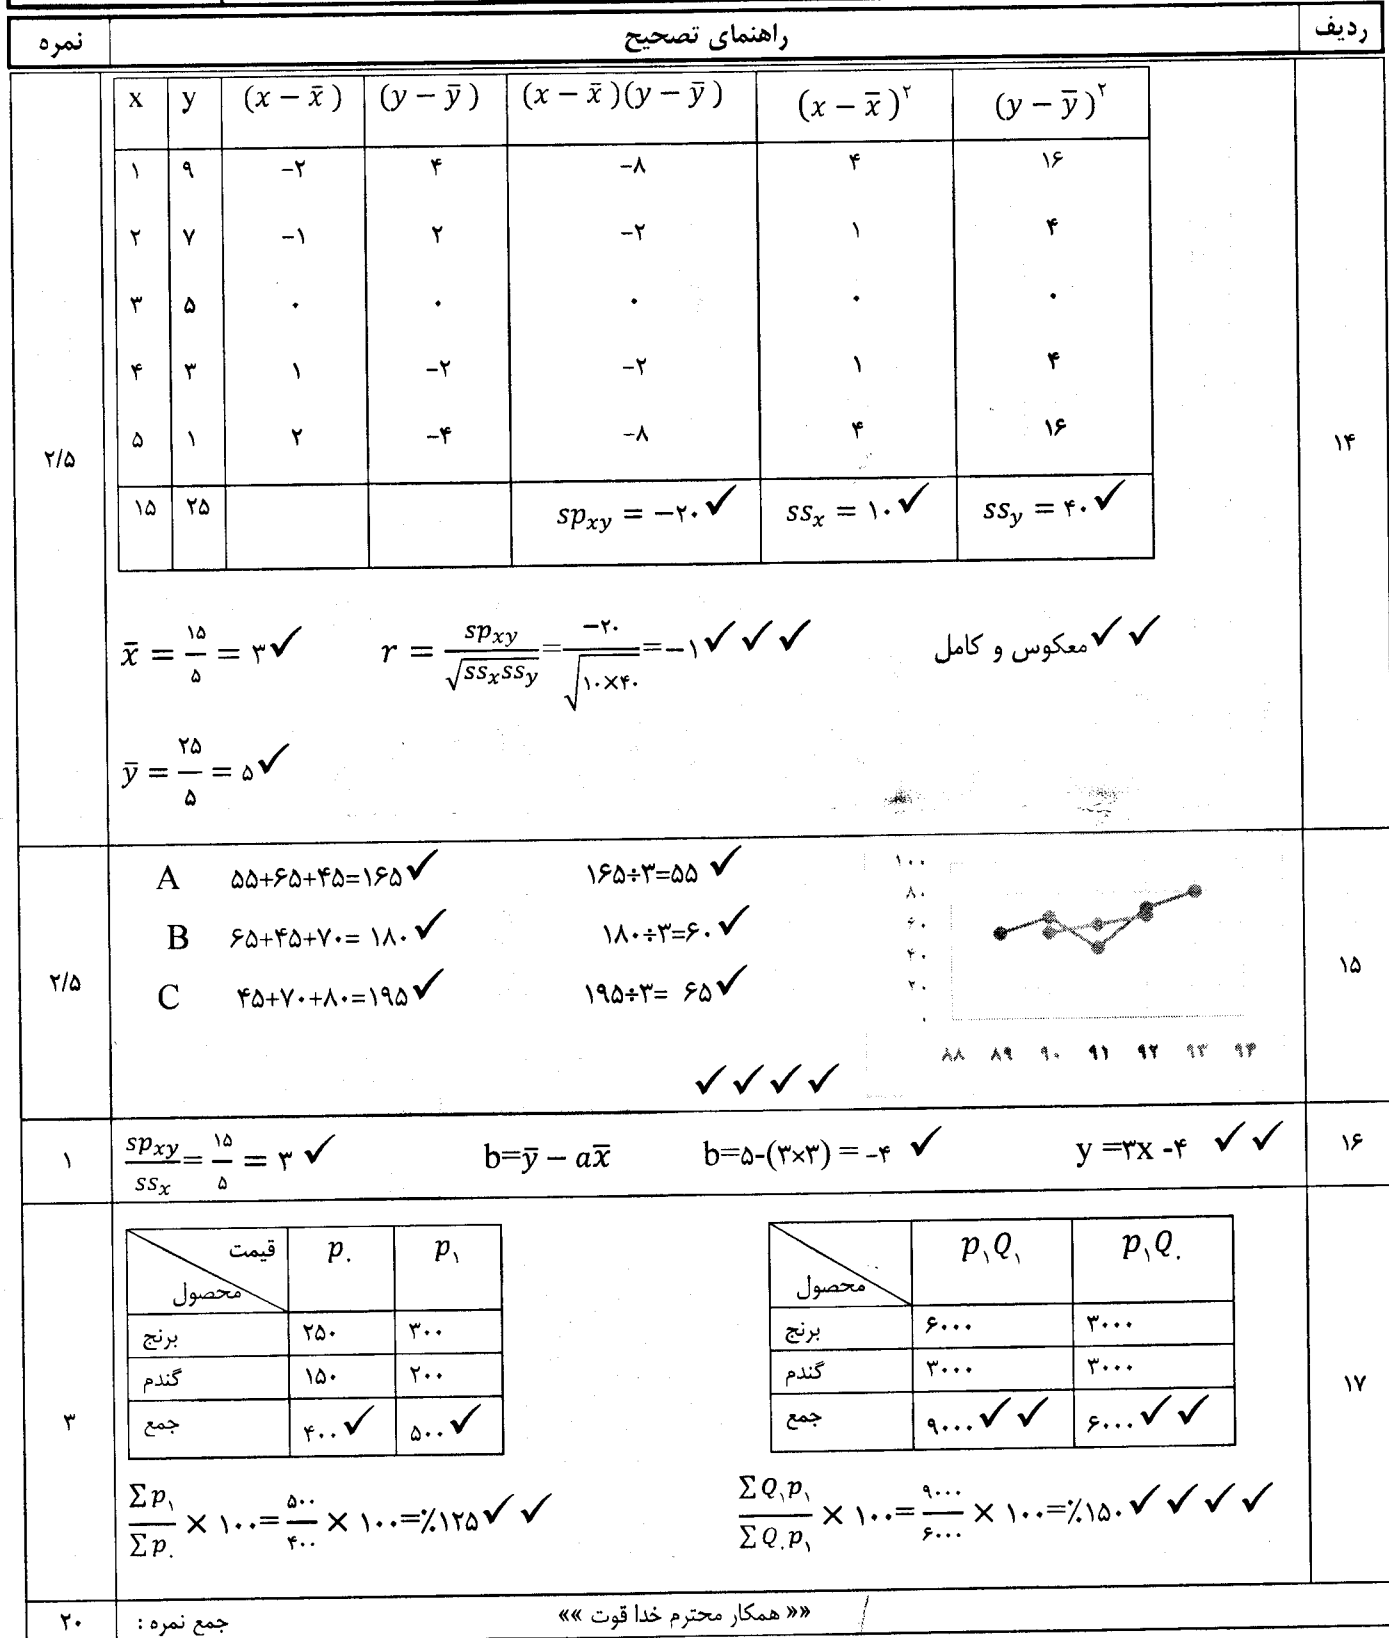 ردیف راهنمای تصحیح نمره
x y (x − x̄) (y − ȳ) (x − x̄)(y − ȳ) (x − x̄)^۲ (y − ȳ)^۲
۱ ۹ −۲ ۴ −۸ ۴ ۱۶
۲ ۷ −۱ ۲ −۲ ۱ ۴
۳ ۵ ۰ ۰ ۰ ۰ ۰
۴ ۳ ۱ −۲ −۲ ۱ ۴
۵ ۱ ۲ −۴ −۸ ۴ ۱۶
۲/۵ ۱۴
۱۵ ۲۵ sp_xy = −۲۰ ✓ ss_x = ۱۰ ✓ ss_y = ۴۰ ✓
x̄ = ۱۵/۵ = ۳ ✓ r = sp_xy/√(ss_x ss_y) = −۲۰/√(۱۰×۴۰) = −۱ ✓ ✓ ✓ معکوس و کامل ✓ ✓
ȳ = ۲۵/۵ = ۵ ✓
A ۵۵+۶۵+۴۵=۱۶۵ ✓ ۱۶۵÷۳=۵۵ ✓
B ۶۵+۴۵+۷۰= ۱۸۰ ✓ ۱۸۰÷۳=۶۰ ✓
C ۴۵+۷۰+۸۰=۱۹۵ ✓ ۱۹۵÷۳= ۶۵ ✓
۲/۵ ۱۵
۱۰۰
۸۰
۶۰
۴۰
۲۰
۰
۸۸ ۸۹ ۹۰ ۹۱ ۹۲ ۹۳ ۹۴
✓ ✓ ✓ ✓
۱ sp_xy/ss_x = ۱۵/۵ = ۳ ✓ b=ȳ − ax̄ b=۵-(۳×۳) = -۴ ✓ y =۳x -۴ ✓ ✓ ۱۶
قیمت محصول p_۰ p_۱
برنج ۲۵۰ ۳۰۰
گندم ۱۵۰ ۲۰۰
جمع ۴۰۰ ✓ ۵۰۰ ✓
محصول p_۱Q_۱ p_۱Q_۰
برنج ۶۰۰۰ ۳۰۰۰
گندم ۳۰۰۰ ۳۰۰۰
جمع ۹۰۰۰ ✓ ✓ ۶۰۰۰ ✓ ✓
۳ ۱۷
∑p_۱/∑p_۰ × ۱۰۰=۵۰۰/۴۰۰ × ۱۰۰=٪۱۲۵ ✓ ✓ ∑Q_۱p_۱/∑Q_۰p_۱ × ۱۰۰=۹۰۰۰/۶۰۰۰ × ۱۰۰=٪۱۵۰ ✓ ✓ ✓ ✓
«« همکار محترم خدا قوت »» جمع نمره : ۲۰